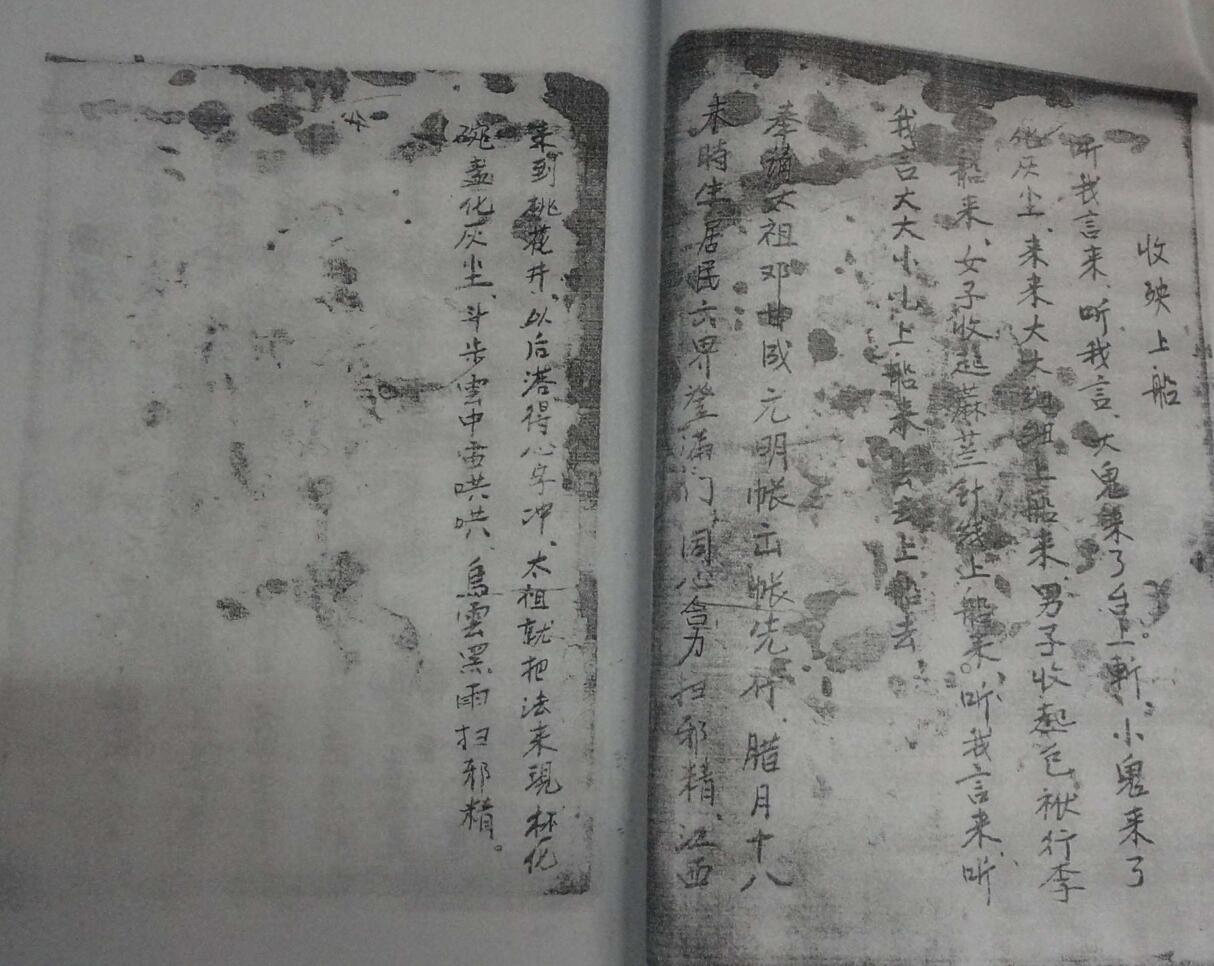 收殃上船
听我言来、听我言、大鬼来了台上斬。小鬼来了
化灰尘、来来大大细细上船来、男子收起包袱行李
上船来、女子收起蔴苎針线上船来。听我言来、听
我言大大小小上船来 去去上船去
奉請太祖邓曲成元明帳出帳先行、腊月十八
未時生居民六界澄满门、同心合力扫邪精、江西
来到桃花井、以后港得心字冲、太祖就把法来現杯化
碗盏化灰尘、斗步雲中雷哄哄、烏雲黑雨扫邪精。